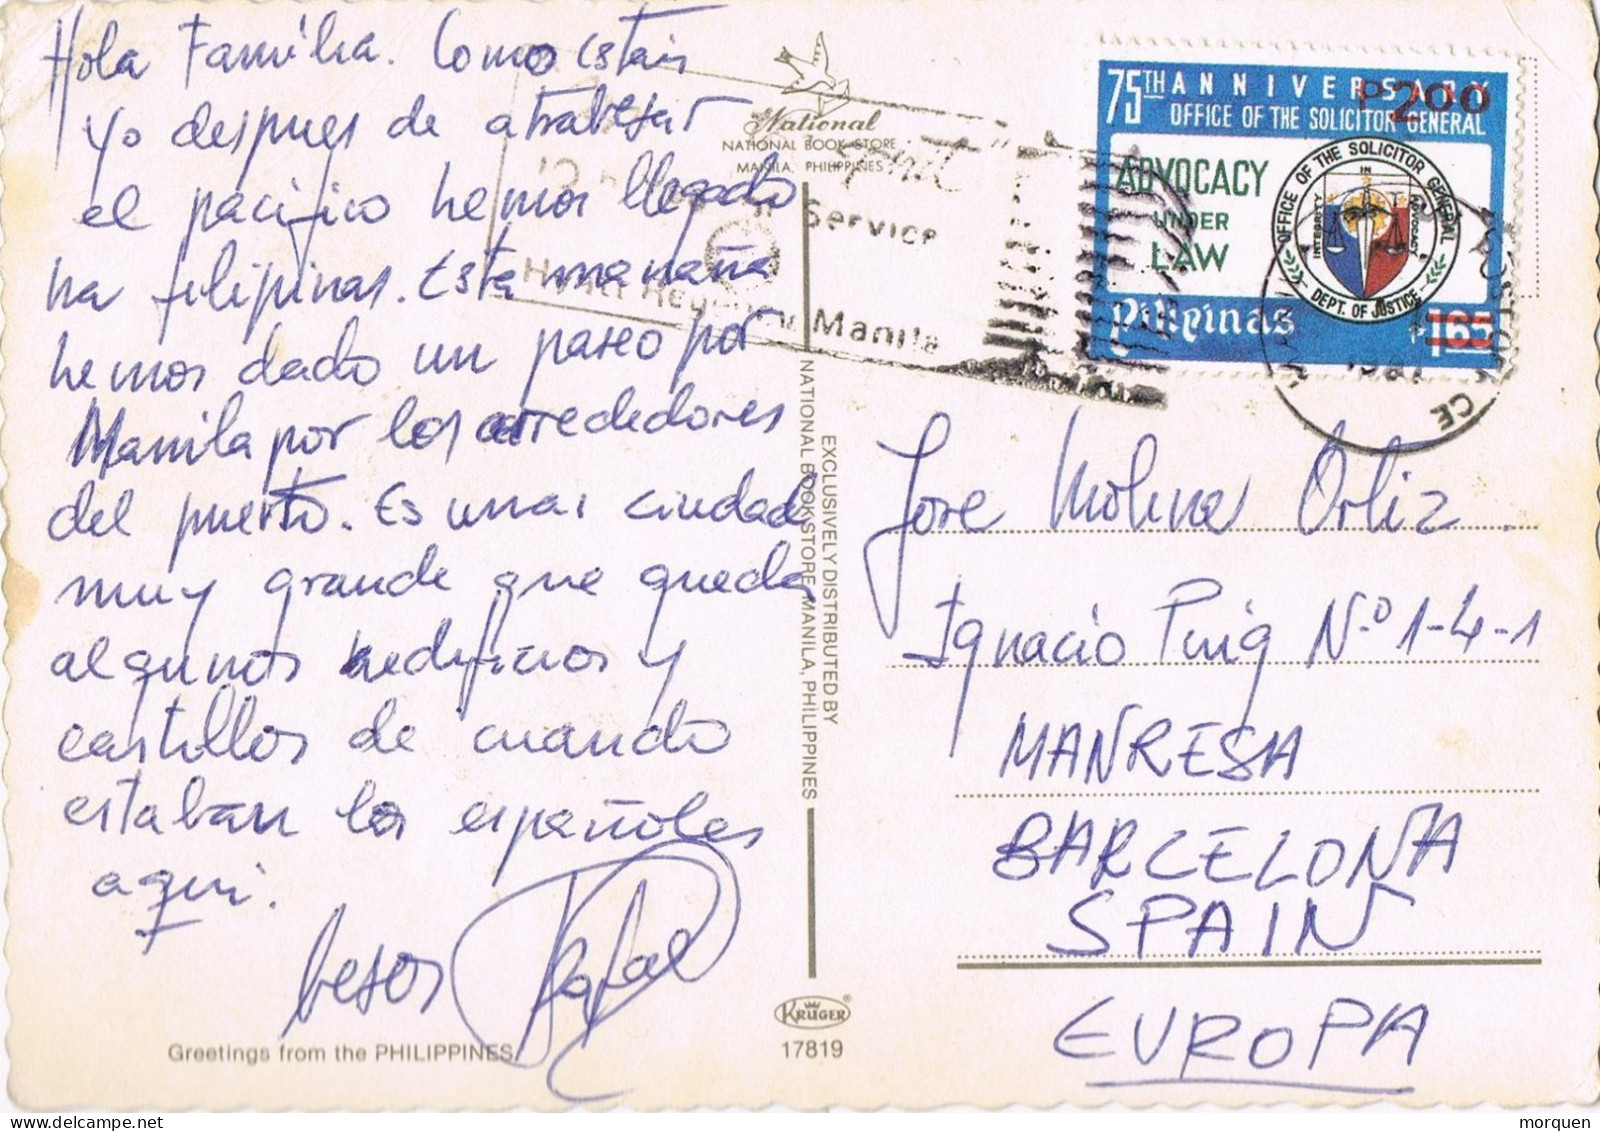 Hola Família. Como estais
yo despues de atrabesar
el pacifico hemos llegado
ha filipinas. Esta manaña
hemos dado un paseo por
Manila por los arrededores
del puerto. Es una ciudad
muy grande que queda
algunos hedificios y
castillos de cuando
estaban los españoles
aqui.
besos Rafael
Greetings from the PHILIPPINES
National
NATIONAL BOOK STORE
MANILA, PHILIPPINES
Service
Manila
EXCLUSIVELY DISTRIBUTED BY
NATIONAL BOOKSTORE MANILA, PHILIPPINES
KRÜGER
17819
75TH ANNIVERSARY
P200
OFFICE OF THE SOLICITOR GENERAL
ADVOCACY
UNDER
LAW
OFFICE OF THE SOLICITOR GENERAL
IN
INTEGRITY
ADVOCACY
DEPT. OF JUSTICE
Pilipinas
P1.65
Jose Molina Ortiz.
Ignacio Puig Nº 1-4-1
MANRESA
BARCELONA
SPAIN
EUROPA
morquen